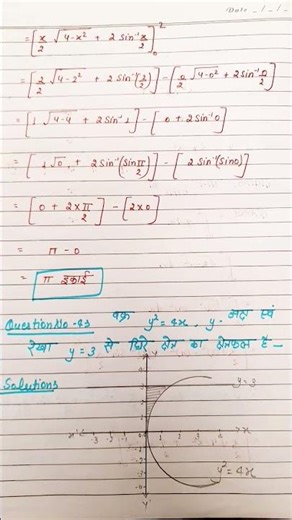 Date _/_/_
= [x/2 √4-x² + 2 sin⁻¹ x/2]₀²
= [2/2 √4-2² + 2 sin⁻¹(2/2)] - [0/2 √4-0² + 2 sin⁻¹ 0/2]
= [1 √4-4 + 2 sin⁻¹ 1] - [0 + 2 sin⁻¹ 0]
= [1√0 + 2 sin⁻¹(sin π/2)] - [2 sin⁻¹(sin 0)]
= [0 + 2×π/2] - [2×0]
= π - 0
= π इकाई
Question No -43 वक्र y² = 4x, y- अक्ष एवं
रेखा y = 3 से घिरे क्षेत्र का क्षेत्रफल है -
Solutions
y=3
x' -3 -2 -1 1 2 3 4 x
y² = 4x
y'